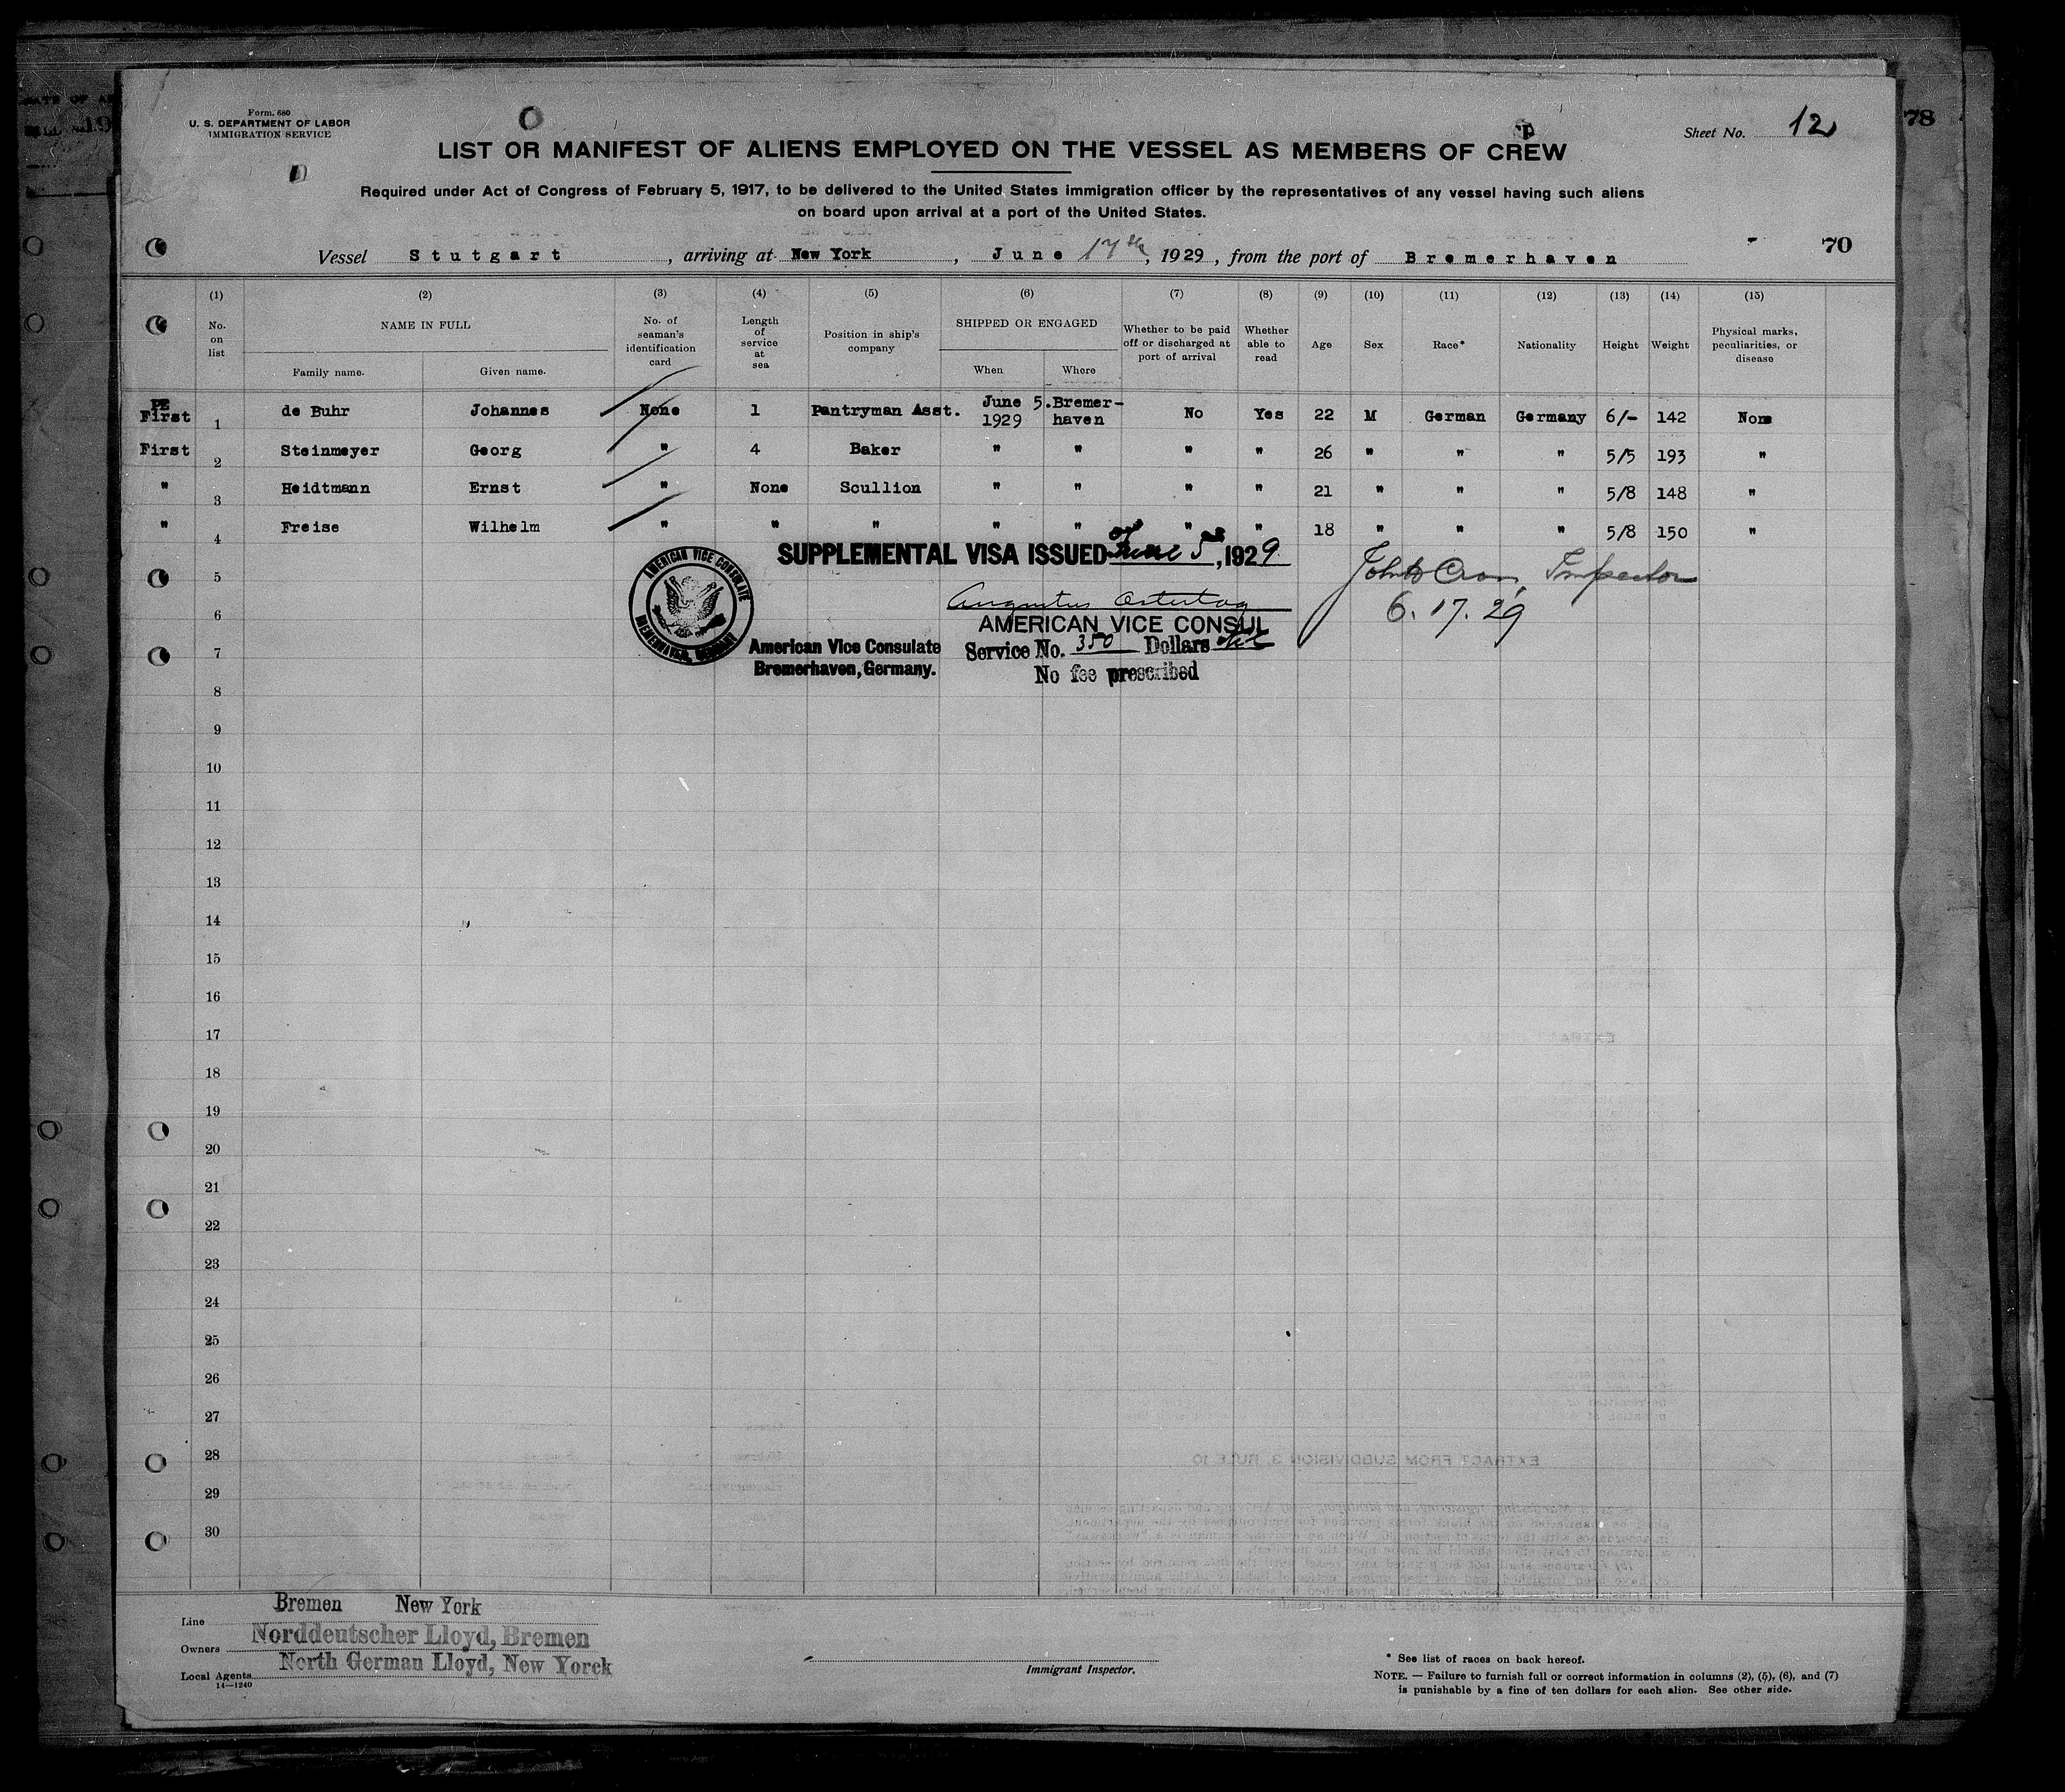 Form. 680
U. S. DEPARTMENT OF LABOR
IMMIGRATION SERVICE
Sheet No. 12
78
LIST OR MANIFEST OF ALIENS EMPLOYED ON THE VESSEL AS MEMBERS OF CREW
Required under Act of Congress of February 5, 1917, to be delivered to the United States immigration officer by the representatives of any vessel having such aliens
on board upon arrival at a port of the United States.
Vessel Stutgart , arriving at New York , June 17th , 1929 , from the port of Bremerhaven 70
(1) (2) (3) (4) (5) (6) (7) (8) (9) (10) (11) (12) (13) (14) (15)
No. on list NAME IN FULL Family name. Given name. No. of seaman's identification card Length of service at sea Position in ship's company SHIPPED OR ENGAGED When Where Whether to be paid off or discharged at port of arrival Whether able to read Age Sex Race* Nationality Height Weight Physical marks, peculiarities, or disease
PE
First 1 de Buhr Johannes None 1 Pantryman Asst. June 5. 1929 Bremer-haven No Yes 22 M German Germany 6/- 142 None
First 2 Steinmeyer Georg " 4 Baker " " " " 26 " " " 5/5 193 "
" 3 Heidtmann Ernst " None Scullion " " " " 21 " " " 5/8 148 "
" 4 Freise Wilhelm " " " " " " " 18 " " " 5/8 150 "
SUPPLEMENTAL VISA ISSUED June 5, 1929
AMERICAN VICE CONSULATE
BREMERHAVEN, GERMANY
Augustus Ostertag
AMERICAN VICE CONSUL
American Vice Consulate
Bremerhaven, Germany.
Service No. 350 Dollars
No fee prescribed
Inspector
6.17.29
5
6
7
8
9
10
11
12
13
14
15
16
17
18
19
20
21
22
23
24
25
26
27
28
29
30
EXTRACT FROM SUBDIVISION 3, RULE 10
Line Bremen New York
Owners Norddeutscher Lloyd, Bremen
Local Agents North German Lloyd, New Yorek
14—1240
Immigrant Inspector.
* See list of races on back hereof.
NOTE. — Failure to furnish full or correct information in columns (2), (5), (6), and (7)
is punishable by a fine of ten dollars for each alien. See other side.